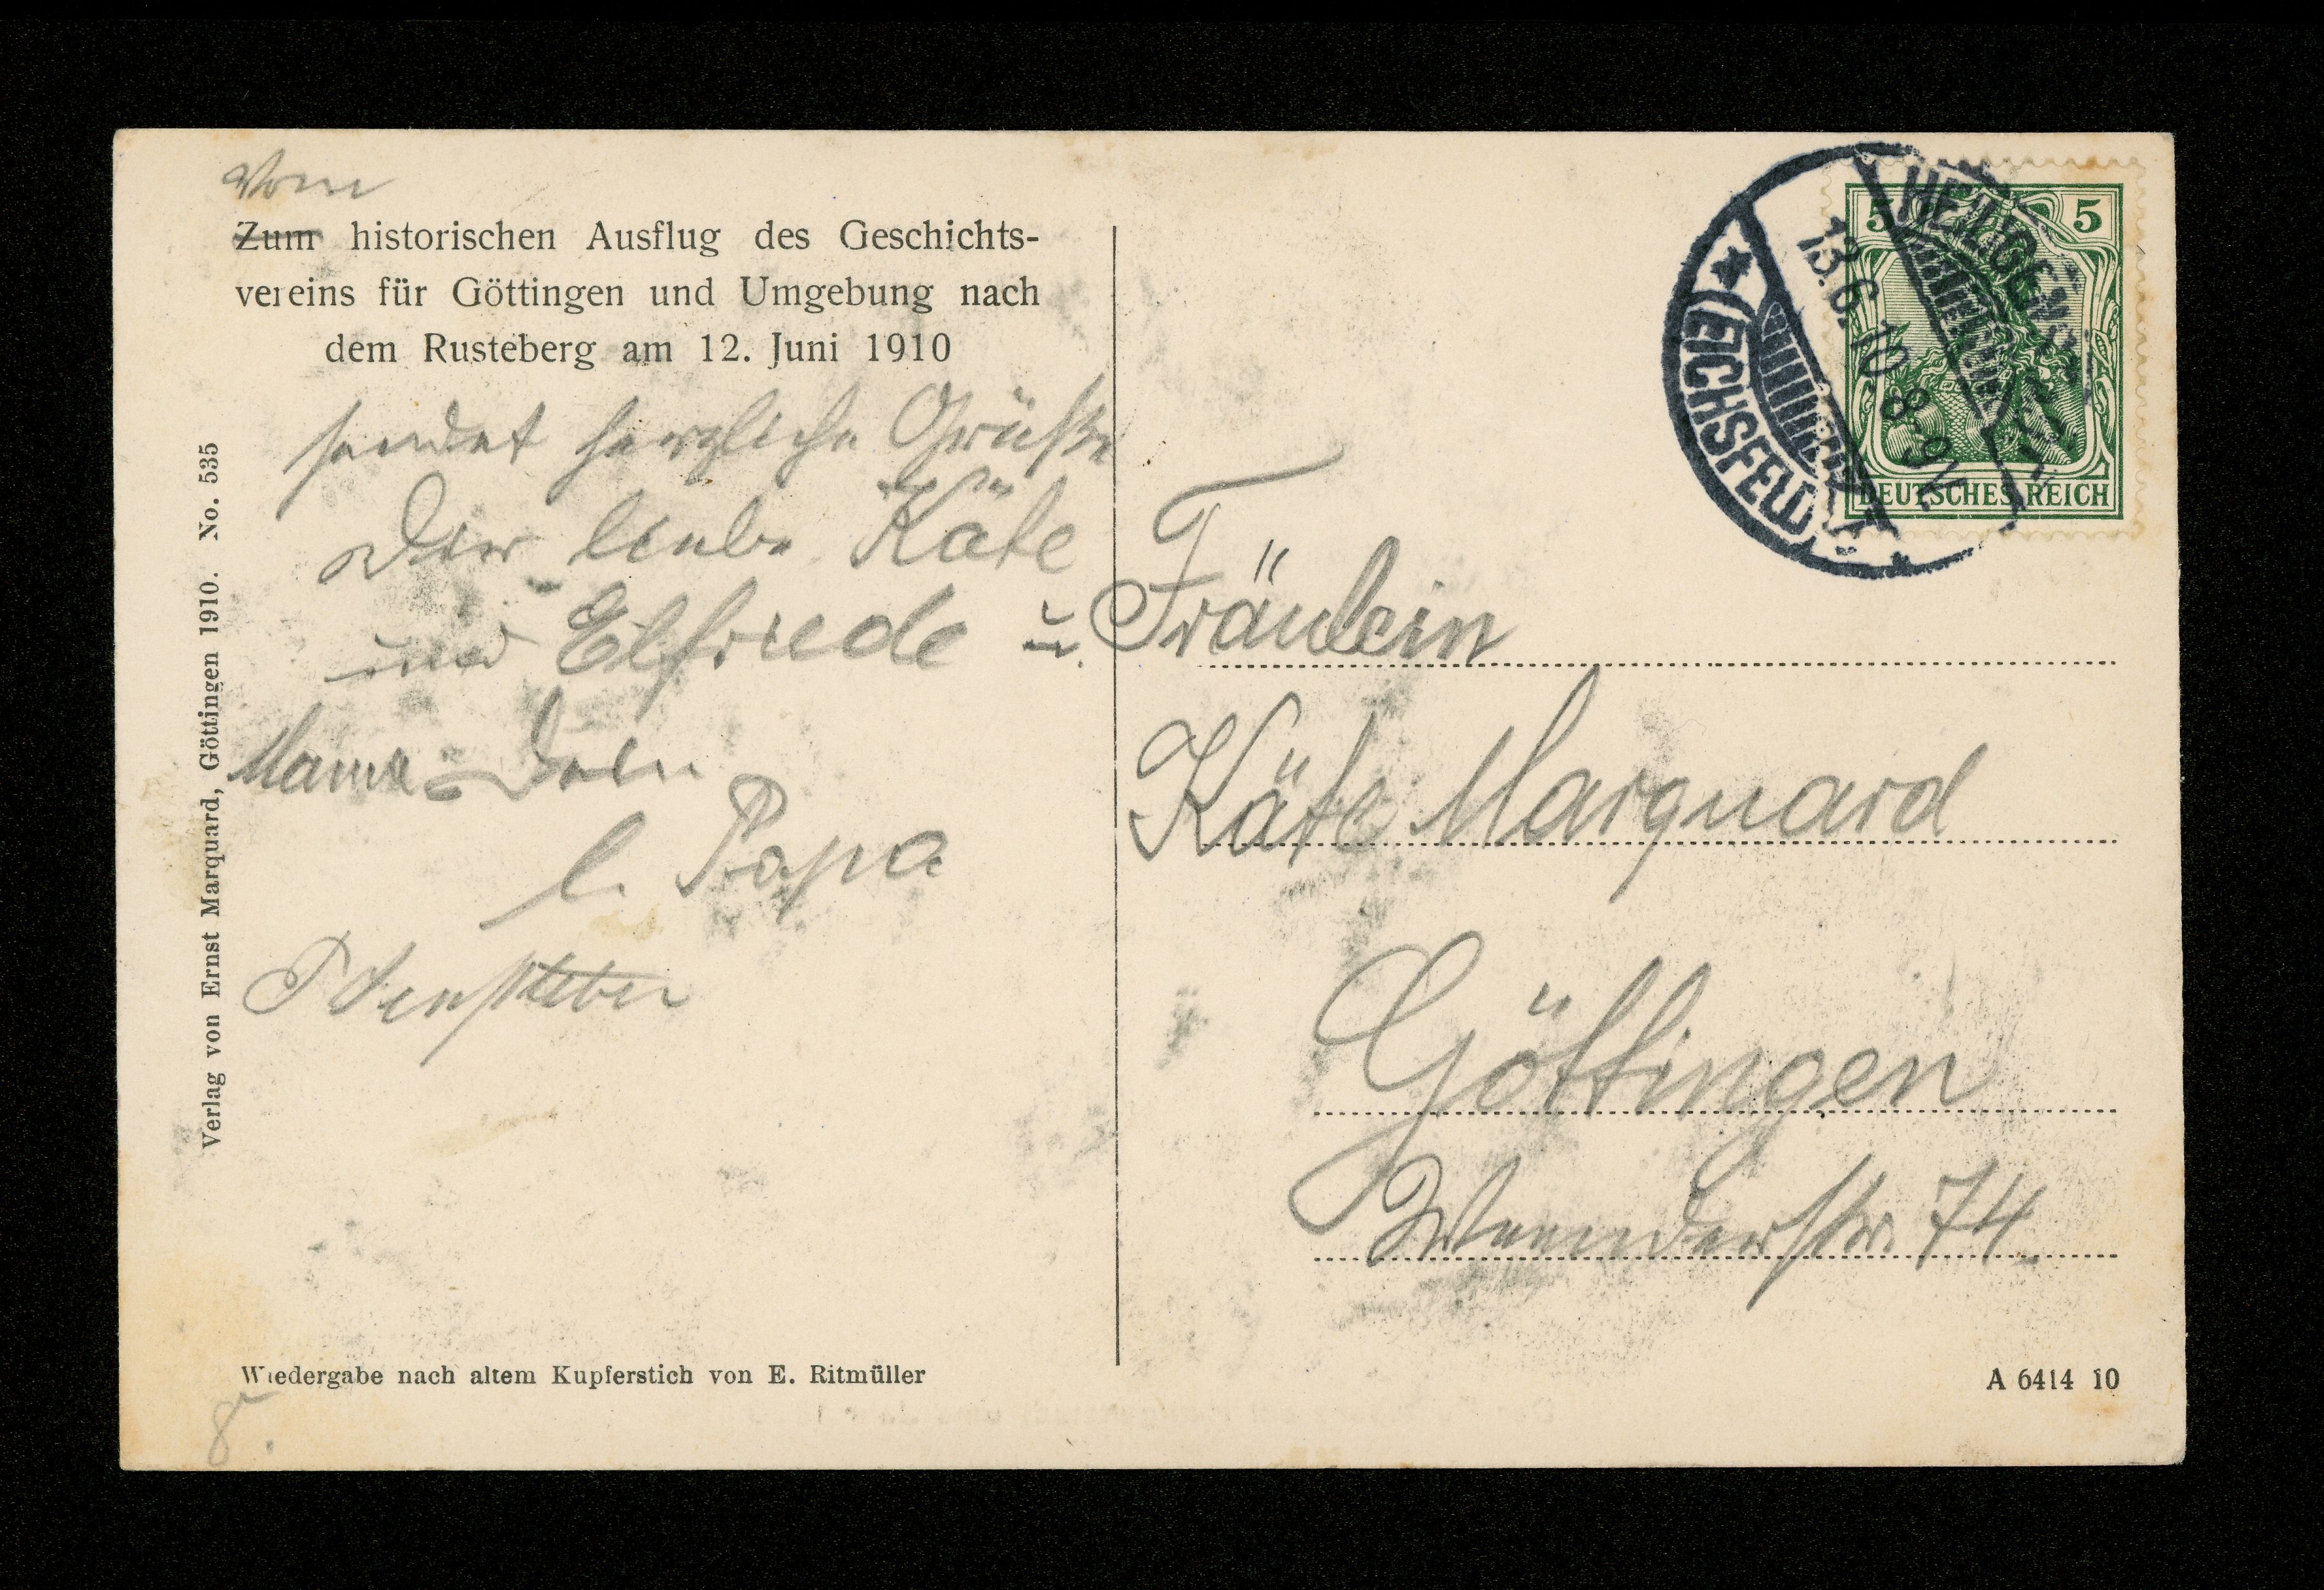 Vom
Zum historischen Ausflug des Geschichts-
vereins für Göttingen und Umgebung nach
dem Rusteberg am 12. Juni 1910
sendet herzliche Grüße
Dir liebe Käte
und Elfriede u.
Mama Dein
l. Papa
Verlag von Ernst Marquard, Göttingen 1910. No. 535
Wiedergabe nach altem Kupferstich von E. Ritmüller
5 5
DEUTSCHES REICH
HEILIGENSTADT
13.6.10 8-9V.
* (EICHSFELD) *
Fräulein
Käte Marquard
Göttingen
Weenderstr. 74.
A 6414 10